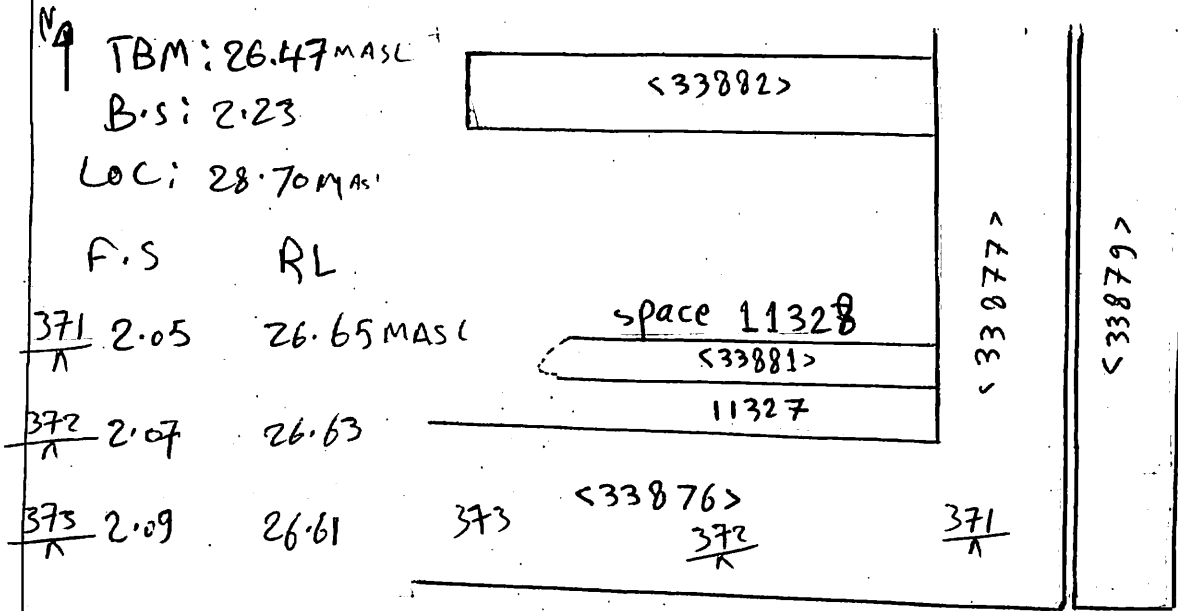 N
TBM: 26.47 MASL
B.S: 2.23
LOC: 28.70 MAS
F.S RL
371 2.05 26.65 MASL
372 2.07 26.63
373 2.09 26.61
<33882>
space 11328
<33881>
11327
<33876>
373 372 371
<33877>
<33879>